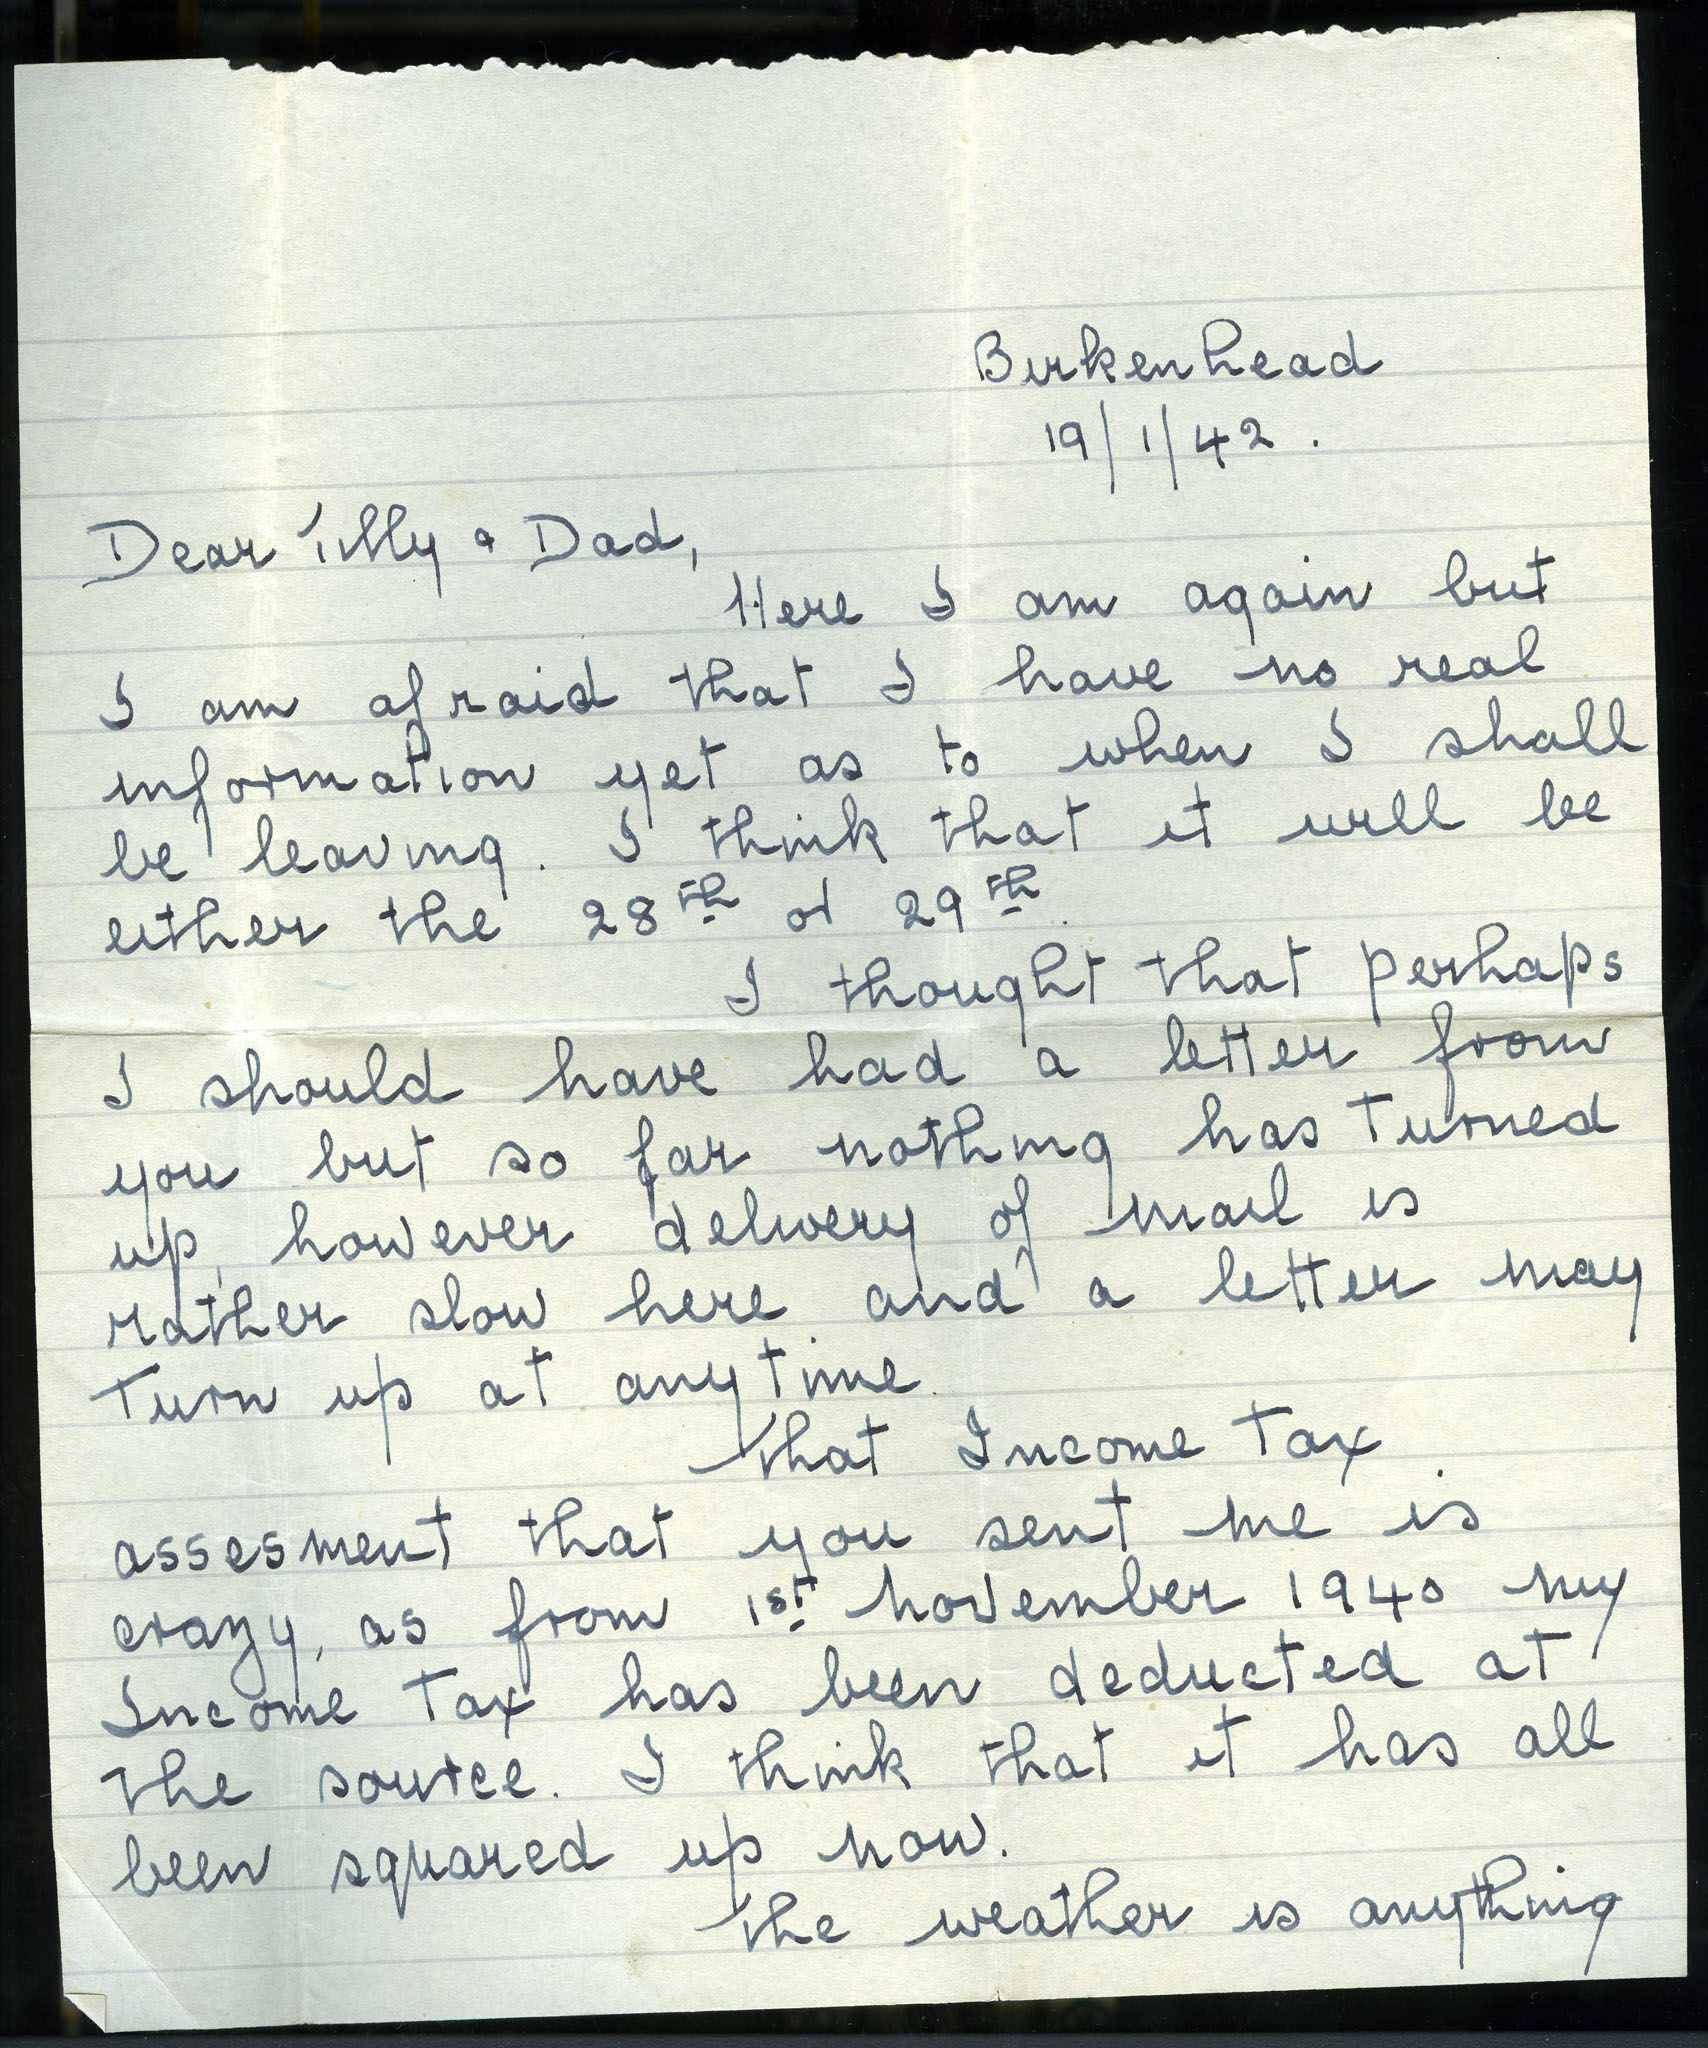 Birkenhead
19/1/42.
Dear Tilly & Dad,
Here I am again but
I am afraid that I have no real
information yet as to when I shall
be leaving. I think that it will be
either the 28th or 29th.
I thought that perhaps
I should have had a letter from
you but so far nothing has turned
up, however delivery of mail is
rather slow here and a letter may
turn up at anytime.
That Income Tax
assesment that you sent me is
crazy, as from 1st November 1940 my
Income Tax has been deducted at
the source. I think that it has all
been squared up now.
The weather is anything